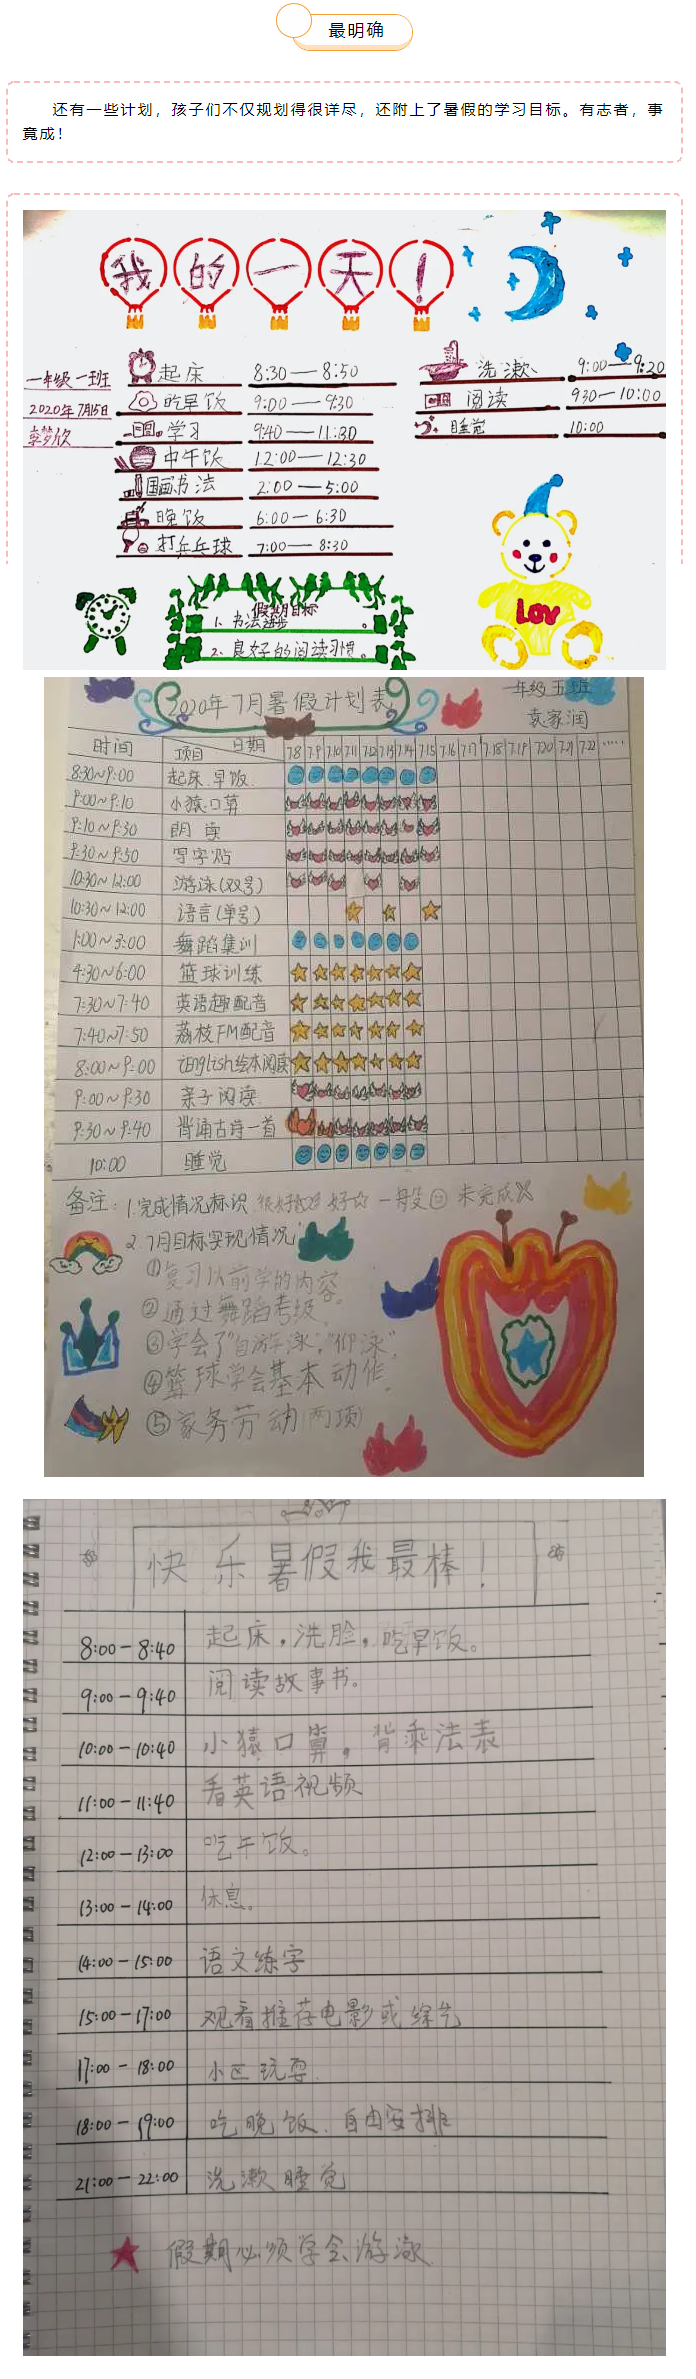 最明确
还有一些计划，孩子们不仅规划得很详尽，还附上了暑假的学习目标。有志者，事
竟成！
我的一天！
一年级一班
2020年7月15日
起床 8:30——8:50
吃早饭 9:00——9:30
学习 9:40——11:30
中午饭 12:00——12:30
国画书法 2:00——5:00
晚饭 6:00——6:30
打乒乓球 7:00——8:30
洗漱 9:00——9:20
阅读 930——10:00
睡觉 10:00
假期目标
1、书法进步。
2、良好的阅读习惯。
Lov
2020年7月暑假计划表
一年级五班
袁家润
时间 项目 日期 7.8 7.9 7.10 7.11 7.12 7.13 7.14 7.15 7.16 7.17 7.18 7.19 7.20 7.21 7.22 ……
8:30~9:00 起床.早饭
9:00~9:10 小猿口算
9:10~9:30 朗读
9:30~9:50 写字帖
10:30~12:00 游泳(双号)
10:30~12:00 语言(单号)
1:00~3:00 舞蹈集训
4:30~6:00 篮球训练
7:30~7:40 英语趣配音
7:40~7:50 荔枝FM配音
8:00~9:00 iEnglish绘本阅读
9:00~9:30 亲子阅读
9:30~9:40 背诵古诗一首
10:00 睡觉
备注：1.完成情况标识 很好 好☆ 一般 未完成
2.7月目标实现情况：
①复习以前学的内容
②通过舞蹈考级.
③学会了"自游泳","仰泳".
④篮球学会基本动作.
⑤家务劳动(两项)
快乐暑假我最棒！
8:00-8:40 起床，洗脸，吃早饭。
9:00-9:40 阅读故事书。
10:00-10:40 小猿口算，背乘法表
11:00-11:40 看英语视频
12:00-13:00 吃午饭。
13:00-14:00 休息。
14:00-15:00 语文练字
15:00-17:00 观看推荐电影或综艺
17:00-18:00 小区玩耍.
18:00-19:00 吃晚饭、自由安排
21:00-22:00 洗漱睡觉
★ 假期必须学会游泳